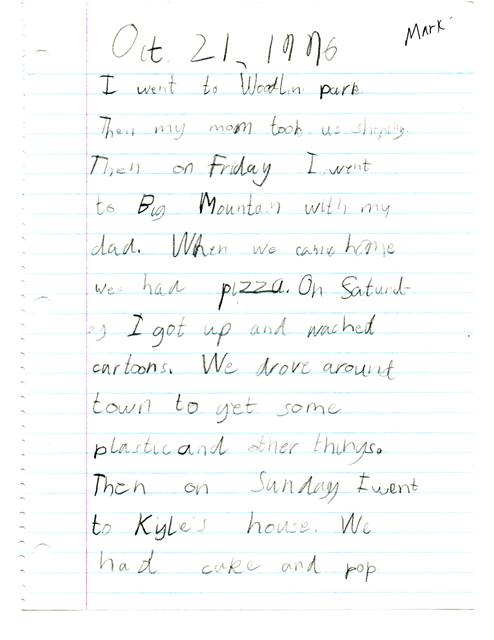 Mark
Oct. 21, 1996
I went to Woodlin park
Then my mom took us shoping.
Then on Friday I went
to Big Mountain with my
dad. When we came home
we had pizza. On Saturd-
ay I got up and wached
cartoons. We drove around
town to get some
plastic and other things.
Then on Sunday I went
to Kyle's house. We
had cake and pop